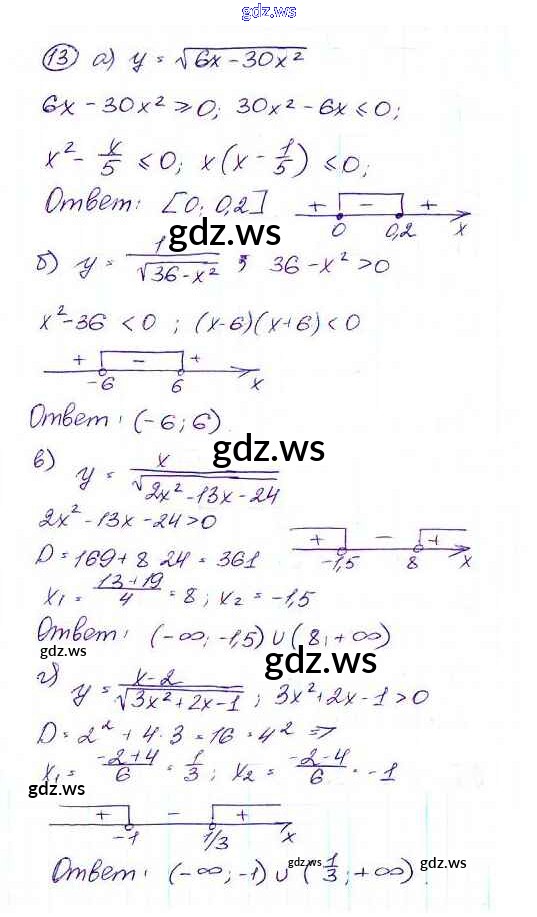 gdz.ws
13 а) y = √(6x - 30x²)
6x - 30x² ⩾ 0; 30x² - 6x ⩽ 0;
x² - x/5 ⩽ 0; x(x - 1/5) ⩽ 0;
Ответ: [0; 0,2] + - + 0 0,2 x
gdz.ws
б) y = 1/√(36-x²) ; 36 - x² > 0
x² - 36 < 0 ; (x-6)(x+6) < 0
+ - +
-6 6 x
Ответ: (-6; 6)
gdz.ws
в) y = x/√(2x² - 13x - 24)
2x² - 13x - 24 > 0
+ - + -1,5 8 x
D = 169 + 8·24 = 361
x₁ = (13+19)/4 = 8; x₂ = -1,5
Ответ: (-∞; -1,5) ∪ (8; +∞)
gdz.ws
gdz.ws
г) y = (x-2)/√(3x²+2x-1) ; 3x²+2x-1 > 0
D = 2² + 4·3 = 16 = 4² ⇒
x₁ = (-2+4)/6 = 1/3; x₂ = (-2-4)/6 = -1
gdz.ws
+ - +
-1 1/3 x
Ответ: (-∞; -1) ∪ (1/3; +∞).
gdz.ws
gdz.ws